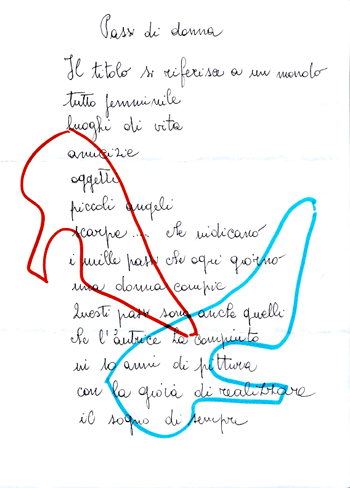 Passi di donna
Il titolo si riferisce a un mondo
tutto femminile
luoghi di vita
amicizie
oggetti
piccoli angeli
scarpe .... che indicano
i mille passi che ogni giorno
una donna compie
Questi passi sono anche quelli
che l'autrice ha compiuto
in 10 anni di pittura
con la gioia di realizzare
il sogno di sempre